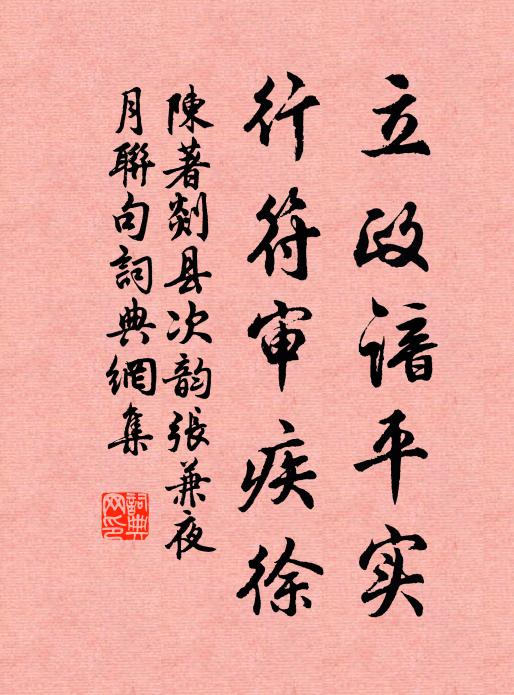 立政谙平实
行符审疾徐
陳著剡县次韵張兼夜
月聯句詞典網集
詞典
网印